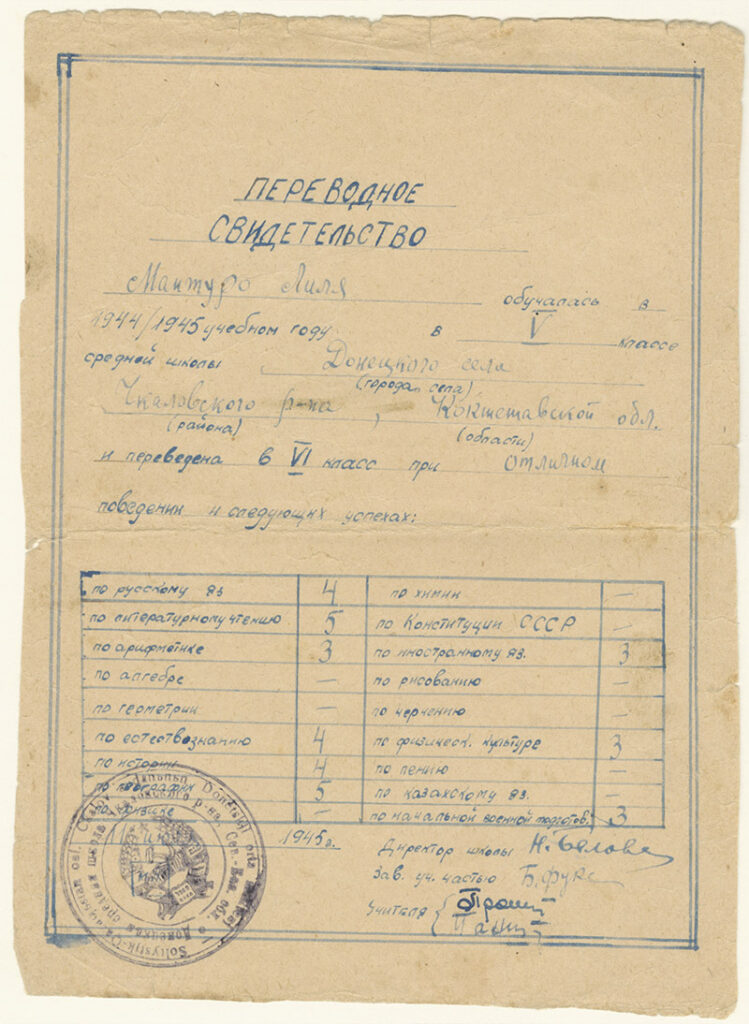 ПЕРЕВОДНОЕ
СВИДЕТЕЛЬСТВО
Мантуро Лиля обучалась в
1944/1945 учебном году в V классе
средней школы Донецкого села
(города, села)
Чкаловского р-на, Кокчетавской обл.
(района) (области)
и переведена в VI класс при отличном
поведении и следующих успехах:
по русскому яз 4 по химии —
по литературному чтению 5 по Конституции СССР —
по арифметике 3 по иностранному яз. 3
по алгебре — по рисованию —
по геометрии — по черчению —
по естествознанию 4 по физическ. культуре 3
по истории 4 по пению —
по географии 5 по казахскому яз. —
по физике — по начальной военной подготов. 3
1945 г.
Директор школы Н. Белова
Зав. уч. частью Б. Фукс
Учителя
Донецкая средняя школа